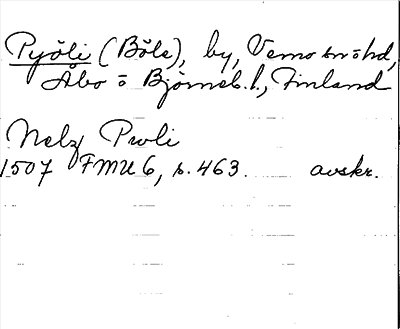 Pyöli (Böle), by, Vemo sn o hd,
Åbo o Björneb. l., Finland
Nelz Pwoli
1507 FMU 6, s. 463. avskr.